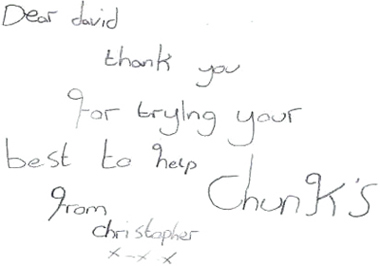 Dear david
thank you
for trying your
best to help
Chunk's
from
christopher
x-x x